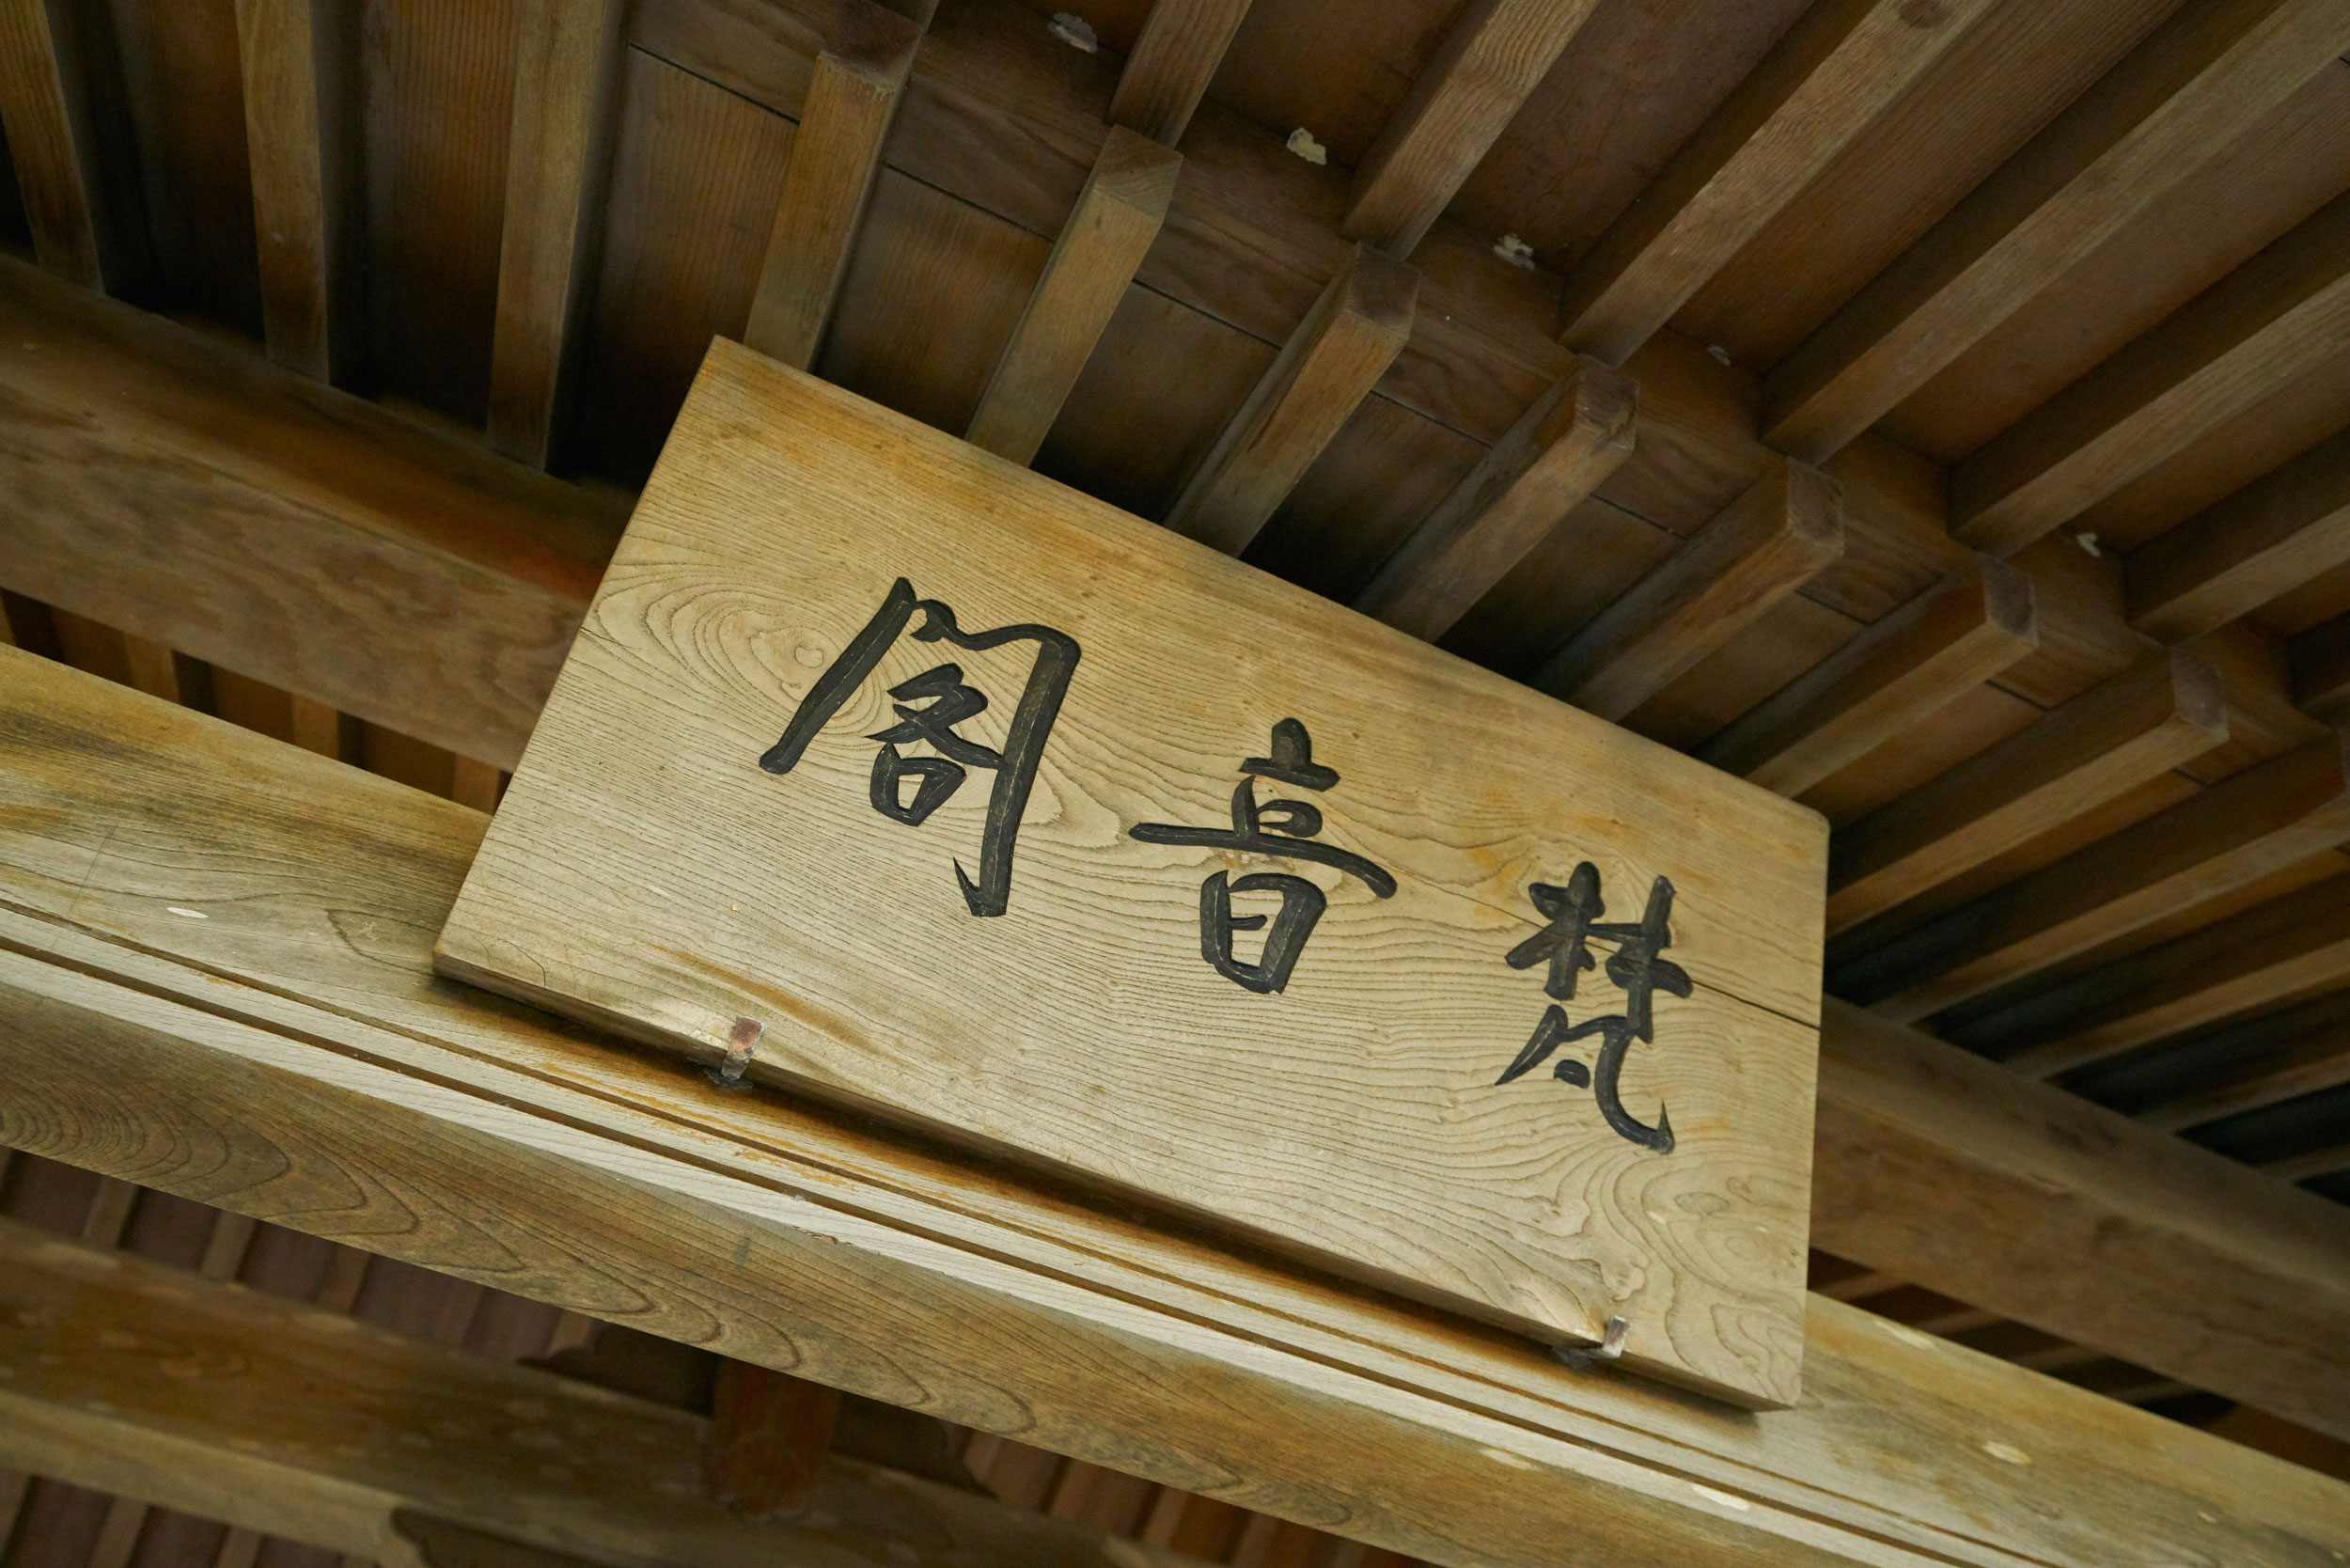 梵音閣